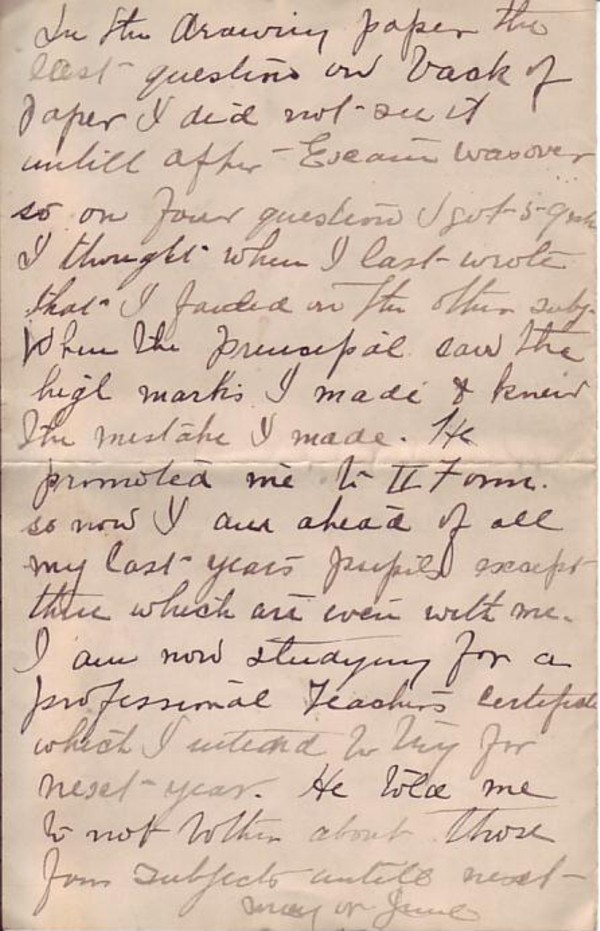 In the drawing paper the
last question on back of
paper I did not see it
untill after Exam was over
so on four question I got 5-
I thought when I last wrote
that I failed in the other subj.
When the princepal saw the
high marks I made & knew
the mistake I made. He
promoted me to II Form.
so now I am ahead of all
my last years pupils except
three which are even with me.
I am now studying for a
professional Teachers certificate
which I intend to try for
next year. He told me
to not bother about those
four subjects untill next
may or June